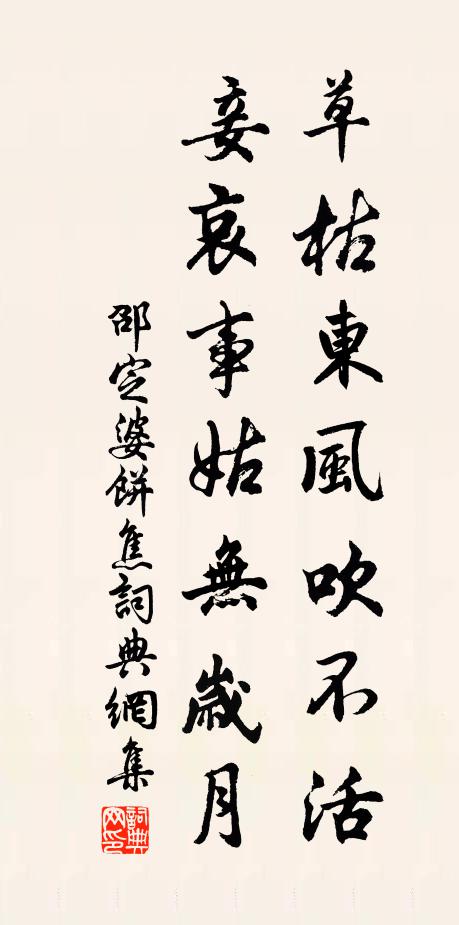 草枯東風吹不活
妾哀事姑無歲月
邵定婆餅焦詞典網集
詞典网印